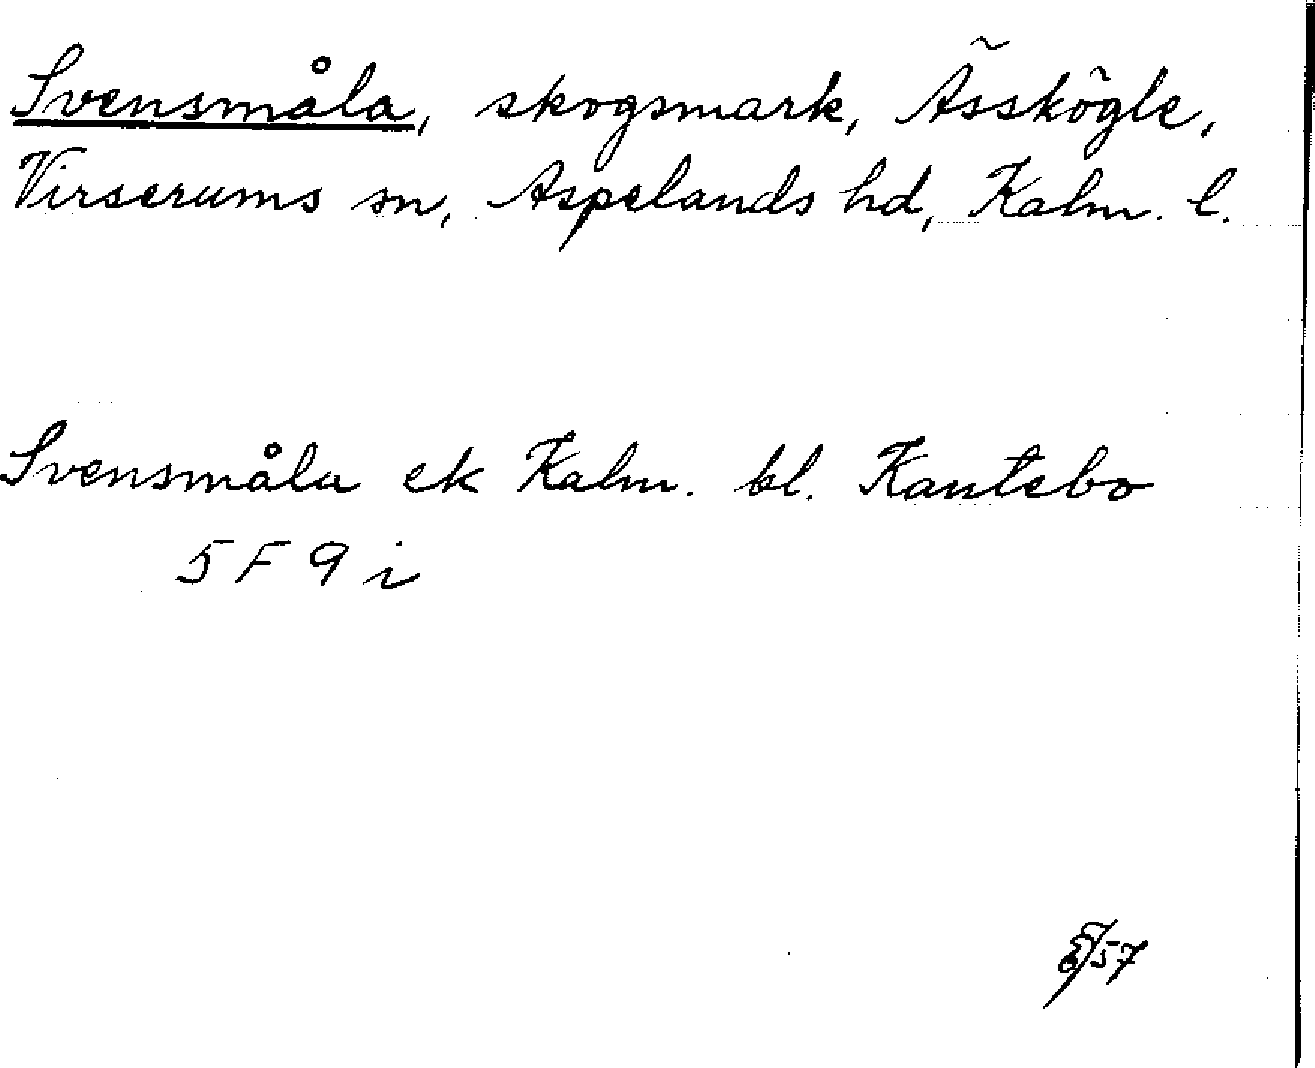 Svensmåla, skogsmark, Ässkögle,
Virserums sn, Aspelands hd, Kalm. l.
Svensmåla ek Kalm. bl. Kantebo
5 F 9 i
/57